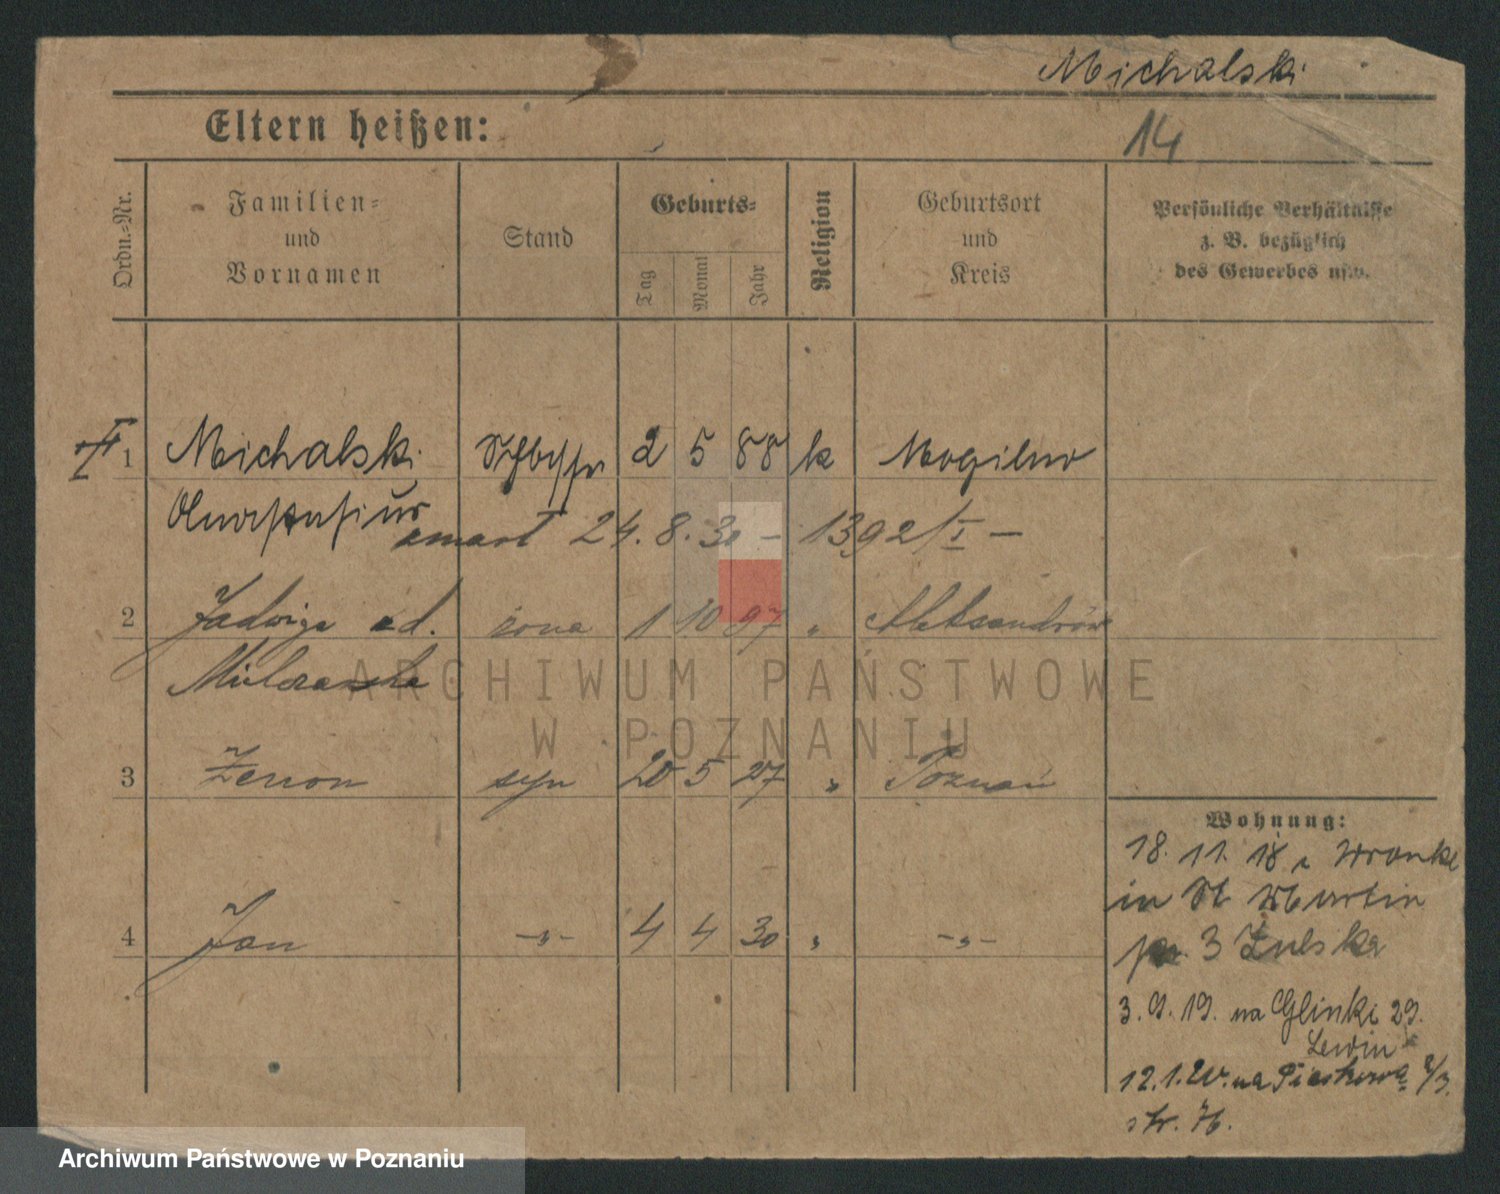 Michalski
Eltern heißen:
14
Ordn.-Nr.
Familien-
und
Vornamen
Stand
Geburts-
Tag
Monat
Jahr
Religion
Geburtsort
und
Kreis
Persönliche Verhältnisse
z. B. bezüglich
des Gewerbes usw.
1 Michalski 2 5 88 k Mogilno
zmarł 24. 8. 30 – 1392/I –
2 Jadwiga żona 1 10 97 " Aleksandrów
3 Zenon syn 20 5 27 " Poznań
4 Jan -"- 4 4 30 " -"-
Wohnung:
18. 11. 18 Wronke
in St Martin
3
3. 9. 19. na Glinki 29.
Lewin
12. 1. na
str. 76.
ARCHIWUM PAŃSTWOWE
W POZNANIU
Archiwum Państwowe w Poznaniu